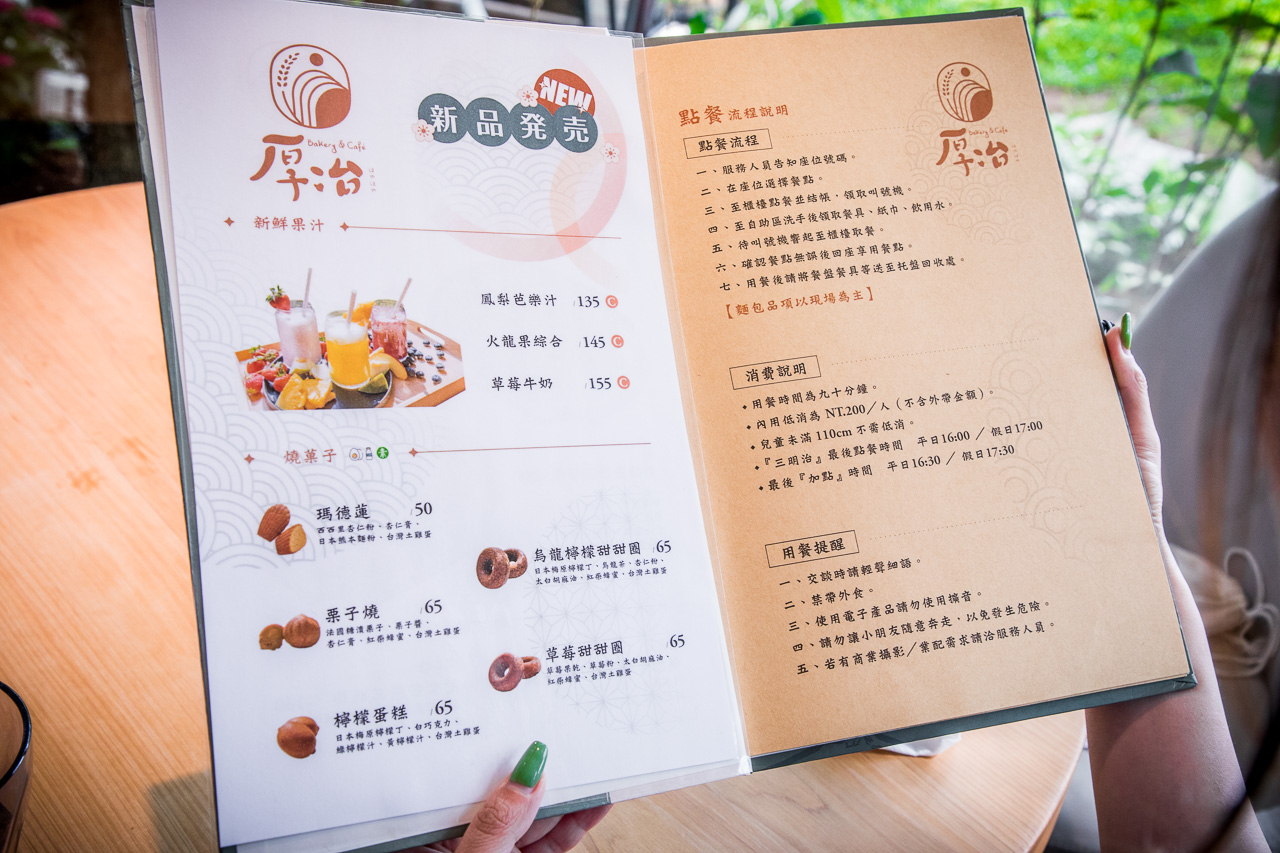 Bakery & Café
厚治
新品発売
NEW
新鮮果汁
鳳梨芭樂汁 /135 C
火龍果綜合 /145 C
草莓牛奶 /155 C
燒菓子
素
瑪德蓮 /50
西西里杏仁粉、杏仁膏、
日本熊本麵粉、台灣土雞蛋
栗子燒 /65
法國糖漬栗子、栗子醬、
杏仁膏、紅柴蜂蜜、台灣土雞蛋
檸檬蛋糕 /65
日本梅原檸檬丁、白巧克力、
綠檸檬汁、黃檸檬汁、台灣土雞蛋
烏龍檸檬甜甜圈 /65
日本梅原檸檬丁、烏龍茶、杏仁粉、
太白胡麻油、紅柴蜂蜜、台灣土雞蛋
草莓甜甜圈 /65
草莓果乾、草莓粉、太白胡麻油、
紅柴蜂蜜、台灣土雞蛋
Bakery & Café
厚治
點餐流程說明
點餐流程
一、服務人員告知座位號碼。
二、在座位選擇餐點。
三、至櫃檯點餐並結帳，領取叫號機。
四、至自助區洗手後領取餐具、紙巾、飲用水。
五、待叫號機響起至櫃檯取餐。
六、確認餐點無誤後回座享用餐點。
七、用餐後請將餐盤餐具等送至托盤回收處。
【麵包品項以現場為主】
消費說明
◆用餐時間為九十分鐘。
◆內用低消為 NT.200／人（不含外帶金額）。
◆兒童未滿 110cm 不需低消。
◆『三明治』最後點餐時間 平日16:00 ／ 假日17:00
◆最後『加點』時間 平日16:30 ／ 假日17:30
用餐提醒
一、交談時請輕聲細語。
二、禁帶外食。
三、使用電子產品請勿使用擴音。
四、請勿讓小朋友隨意奔走，以免發生危險。
五、若有商業攝影／業配需求請洽服務人員。